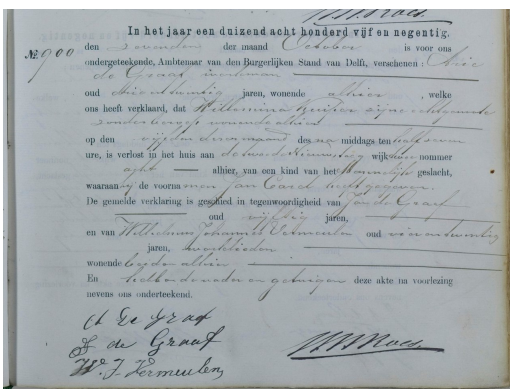 In het jaar een duizend acht honderd vijf en negentig,
No. 900
den zevenden der maand October is voor ons
ondergeteekende, Ambtenaar van den Burgerlijken Stand van Delft, verschenen: Arie
de Graaf werkman
oud drieentwintig jaren, wonende alhier, welke
ons heeft verklaard, dat Willemina zijne echtgenoote
zonder beroep wonende alhier
op den vijfden dezer maand des na middags ten half zeven
ure, is verlost in het huis aan de wijk nommer
acht alhier, van een kind van het Mannelijk geslacht,
waaraan hij de voornamen Jan Carel heeft gegeven.
De gemelde verklaring is geschied in tegenwoordigheid van Jan de Graaf
oud vijftig jaren,
en van Wilhelmus Johannes Vermeulen oud vierentwintig
jaren, werklieden
wonende beiden alhier
En hebben de vader en getuigen deze akte na voorlezing
nevens ons onderteekend.
A de Graaf
J de Graaf
W. J. Vermeulen